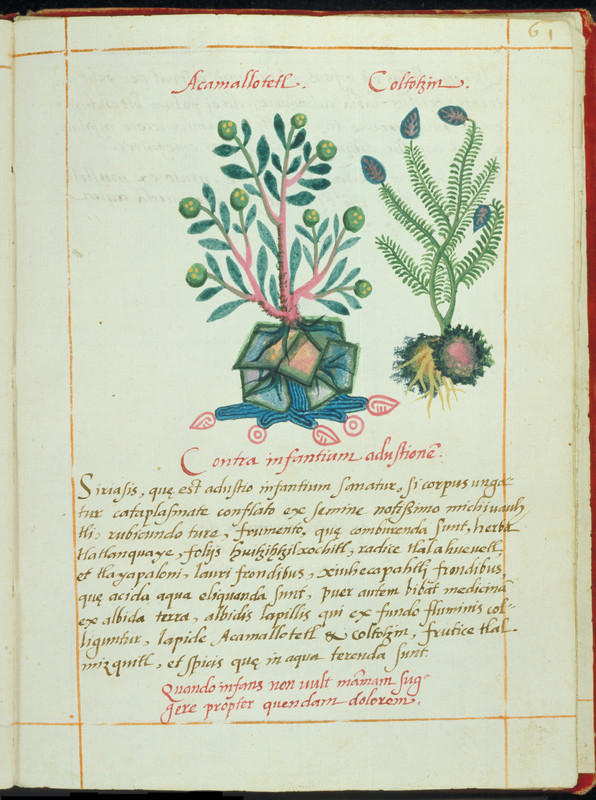 61
Acamallotetl. Coltotzin.
Contra infantium adustionē.
Siriasis, quę est adustio infantium sanatur, si corpus unga-
tur cataplasmate conflato ex semine notissimo michivauh
tli, rubicundo ture, frumento, quę comburenda sunt, herba
tlatlanquaye, folijs huitzihtzilxochitl, radice tlalahuevetl,
et tlayapaloni, lauri frondibus, xiuhecapahtli frondibus,
quę acida aqua eliquanda sunt, puer autem bibat medicinā
ex albida terra, albidis lapillis qui ex fundo fluminis col-
liguntur, lapide Acamallotetl & coltotzin, frutice tlal
mizquitl, et spicis quę in aqua terenda sunt.
Quando infans non uult māmam sug-
gere propter quendam dolorem.